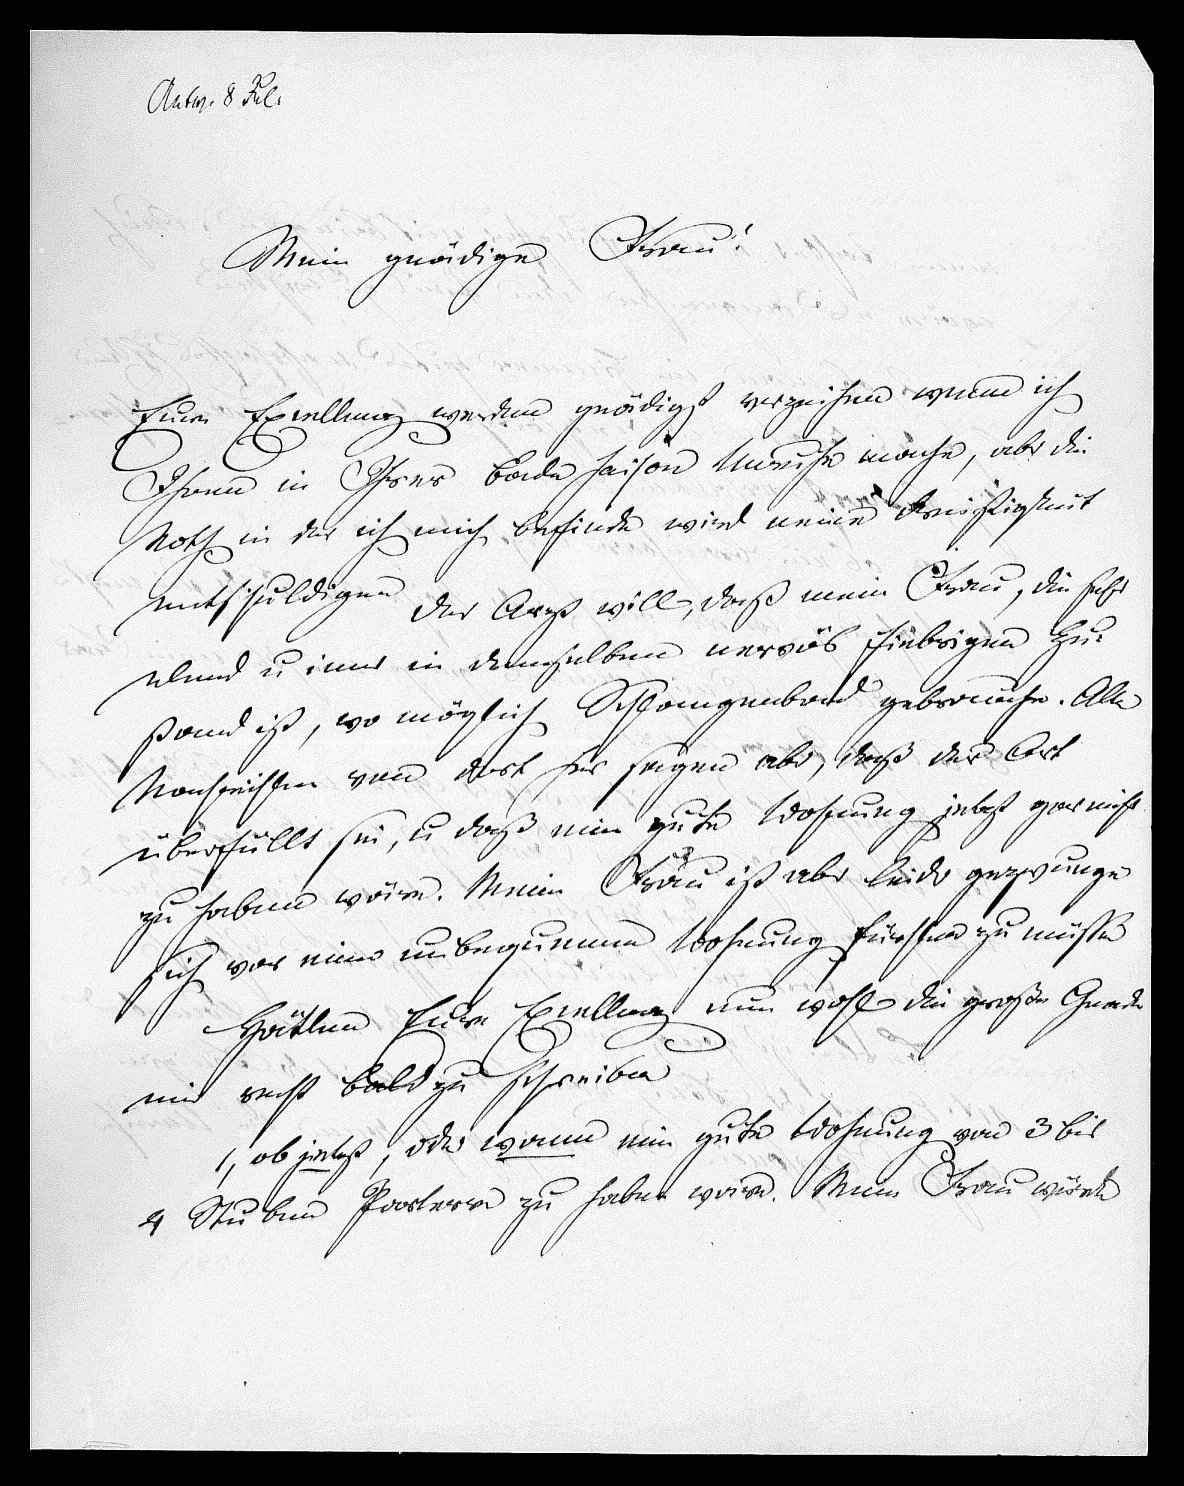 Antw. 8 Jul.
Mein gnädige Frau!
Eure Excellenz werden gnädigst verzeihen wenn ich
Ihnen in Ihrer Bade saison Unruhe mache, aber die
Noth in der ich mich befinde wird meine Dreistigkeit
entschuldigen Der Arzt will, daß mein Frau, die sehr
elend u imer in demselben nervös fiebrigen Zu-
stand ist, wo möglich Schlangenbad gebrauche. Alle
Nachrichten von dort her sagen aber, daß der Ort
überfüllt sei, u daß eine gute Wohnung jetzt gar nicht
zu haben wäre. Meine Frau ist aber leider gezwunge
sich vor einer unbequemen Wohnung fürchten zu müsse
Hätten Eure Excellenz nun wohl die große Gnade
mir recht bald zu schreiben
1, ob jetzt, oder wann eine gute Wohnung von 3 bis
4 Stuben Parterre zu haben wäre. Meine Frau würde